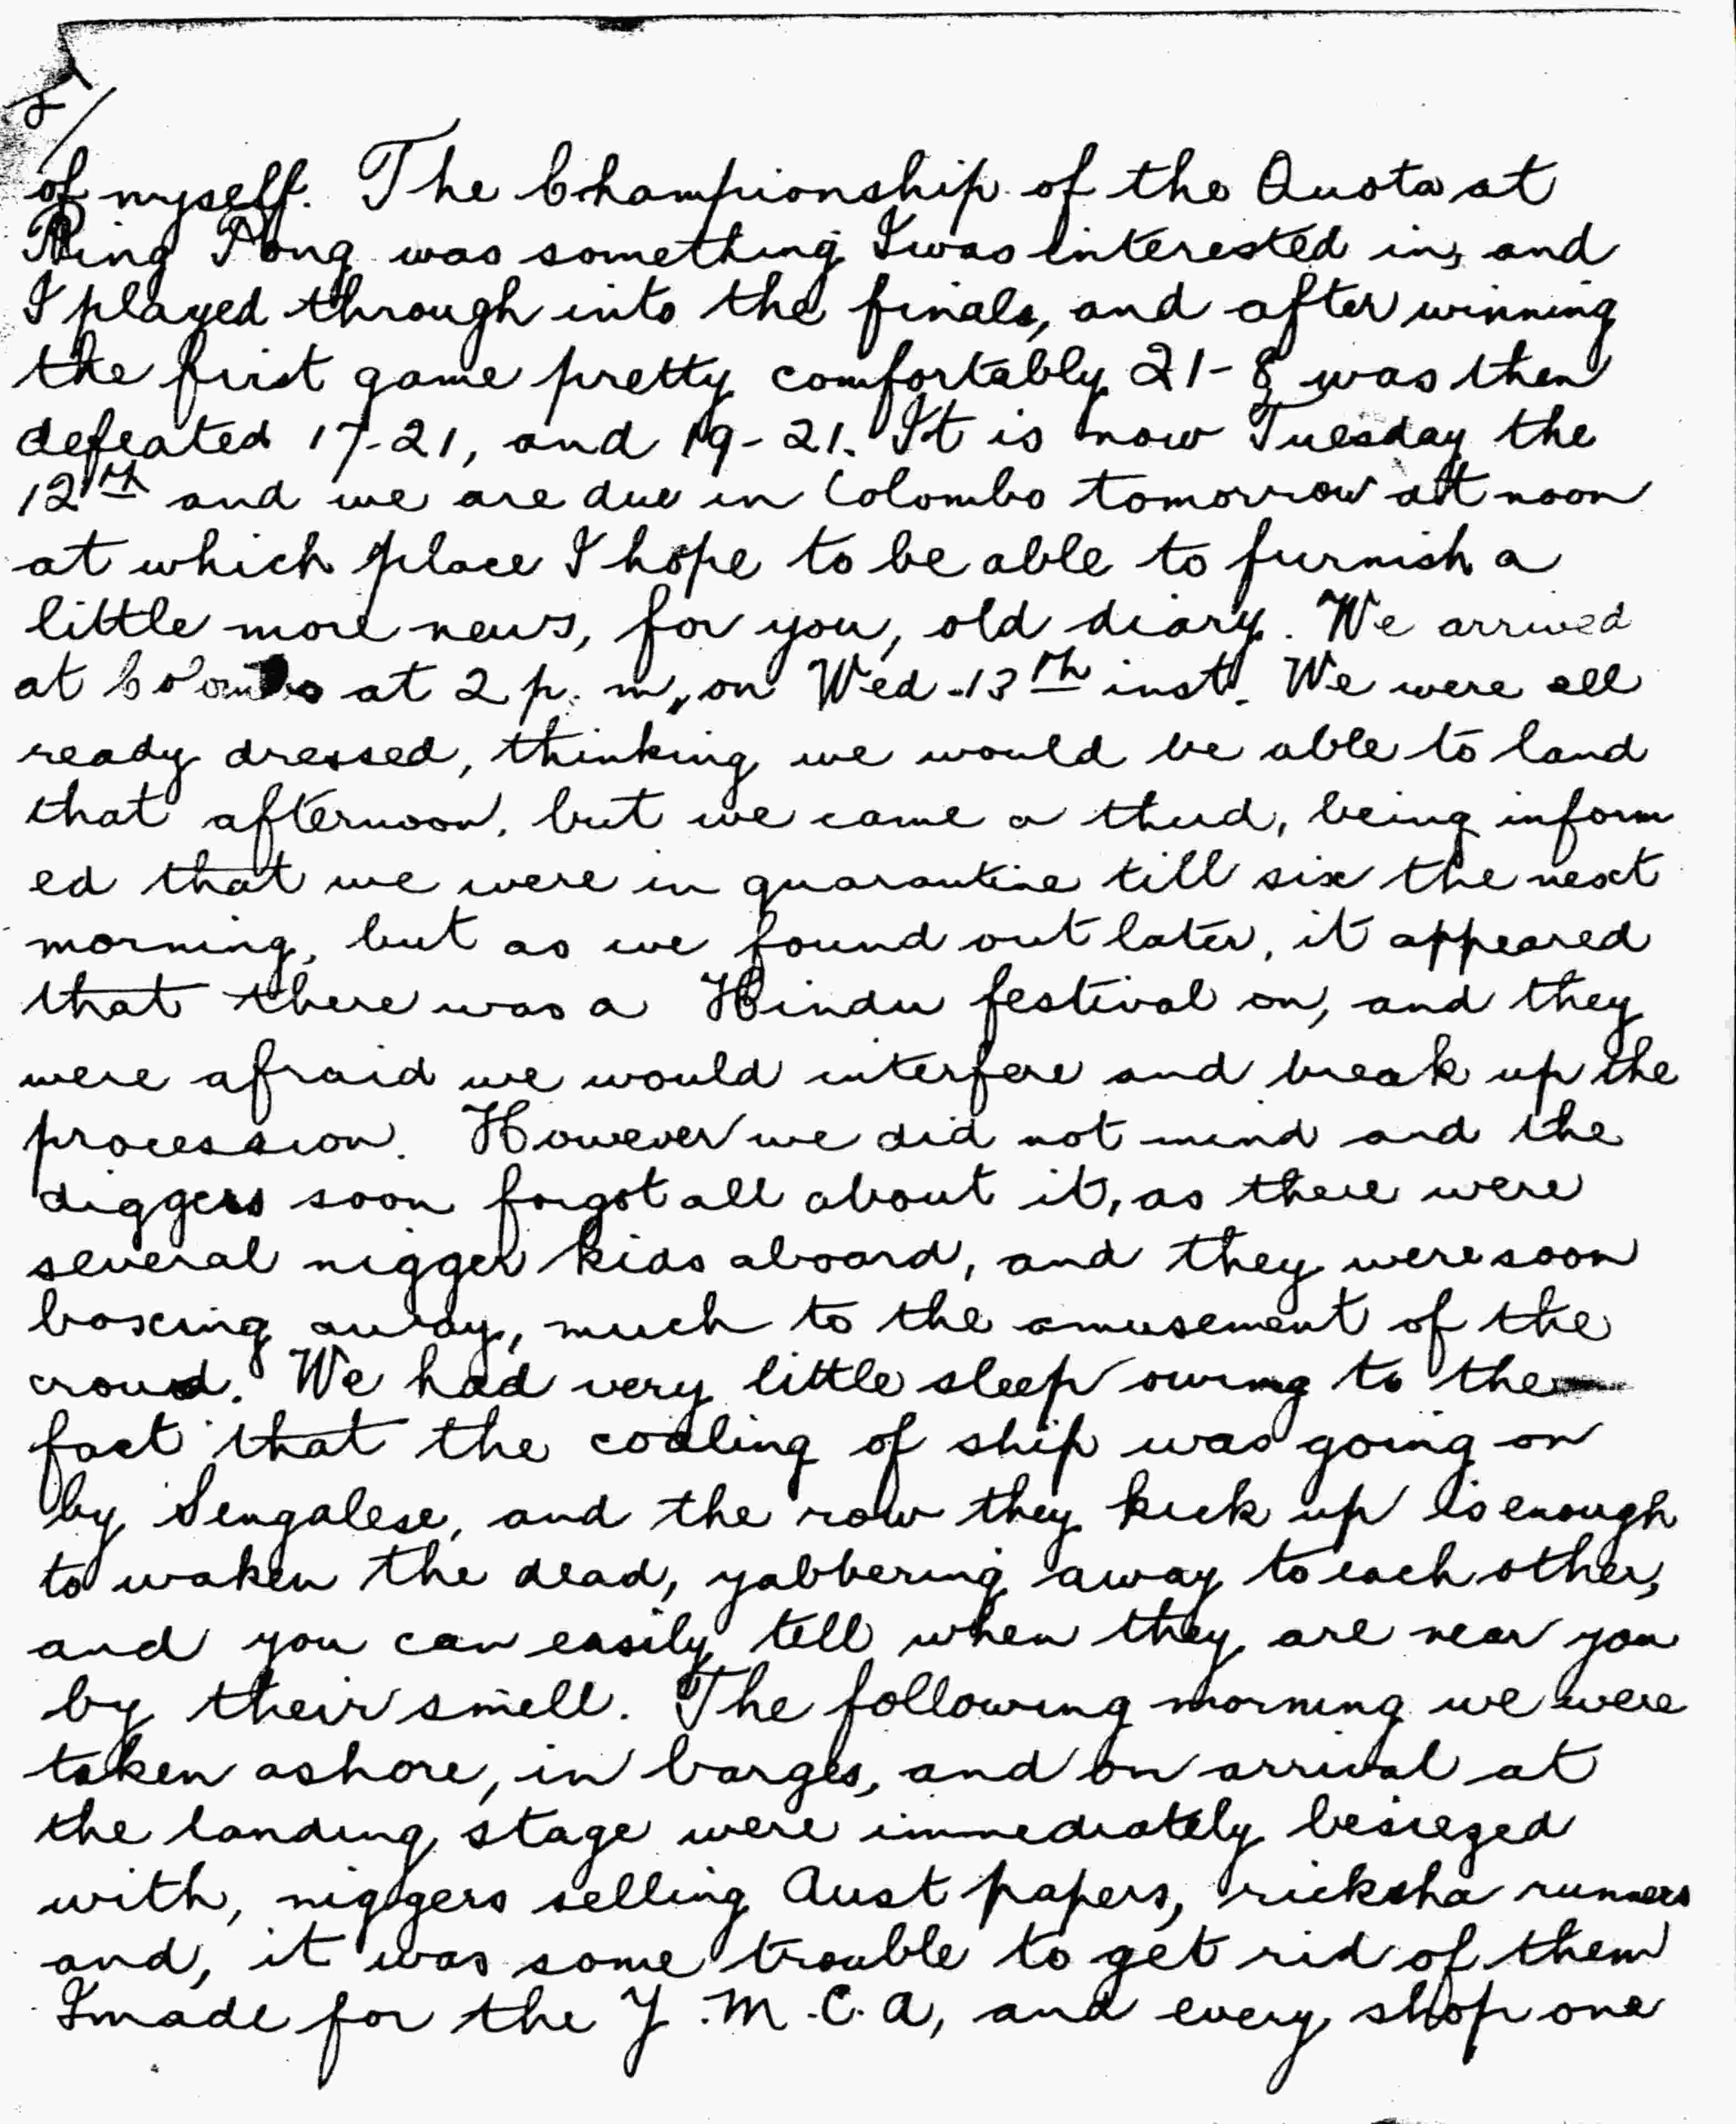 of myself. The Championship of the Quota at
Ping Pong was something I was interested in, and
I played through into the finals, and after winning
the first game pretty comfortably 21-8 was then
defeated 17-21, and 19-21. It is now Tuesday the
12th and we are due in Colombo tomorrow at noon
at which place I hope to be able to furnish a
little more news, for you, old diary. We arrived
at Colombo at 2 p.m, on Wed. 13th inst. We were all
ready dressed, thinking we would be able to land
that afternoon, but we came a thud, being inform
ed that we were in quarantine till six the next
morning, but as we found out later, it appeared
that there was a Hindu festival on, and they
were afraid we would interfere and break up the
procession. However we did not mind and the
diggers soon forgot all about it, as there were
several nigger kids aboard, and they were soon
boxing away, much to the amusement of the
crowd. We had very little sleep owing to the
fact that the coaling of ship was going on
by Sengalese, and the row they kick up is enough
to waken the dead, yabbering away to each other,
and you can easily tell when they are near you
by their smell. The following morning we were
taken ashore, in barges, and on arrival at
the landing stage were immediately besieged
with, niggers selling Aust papers, ricksha runners
and, it was some trouble to get rid of them
I made for the Y.M.C.A, and every shop one